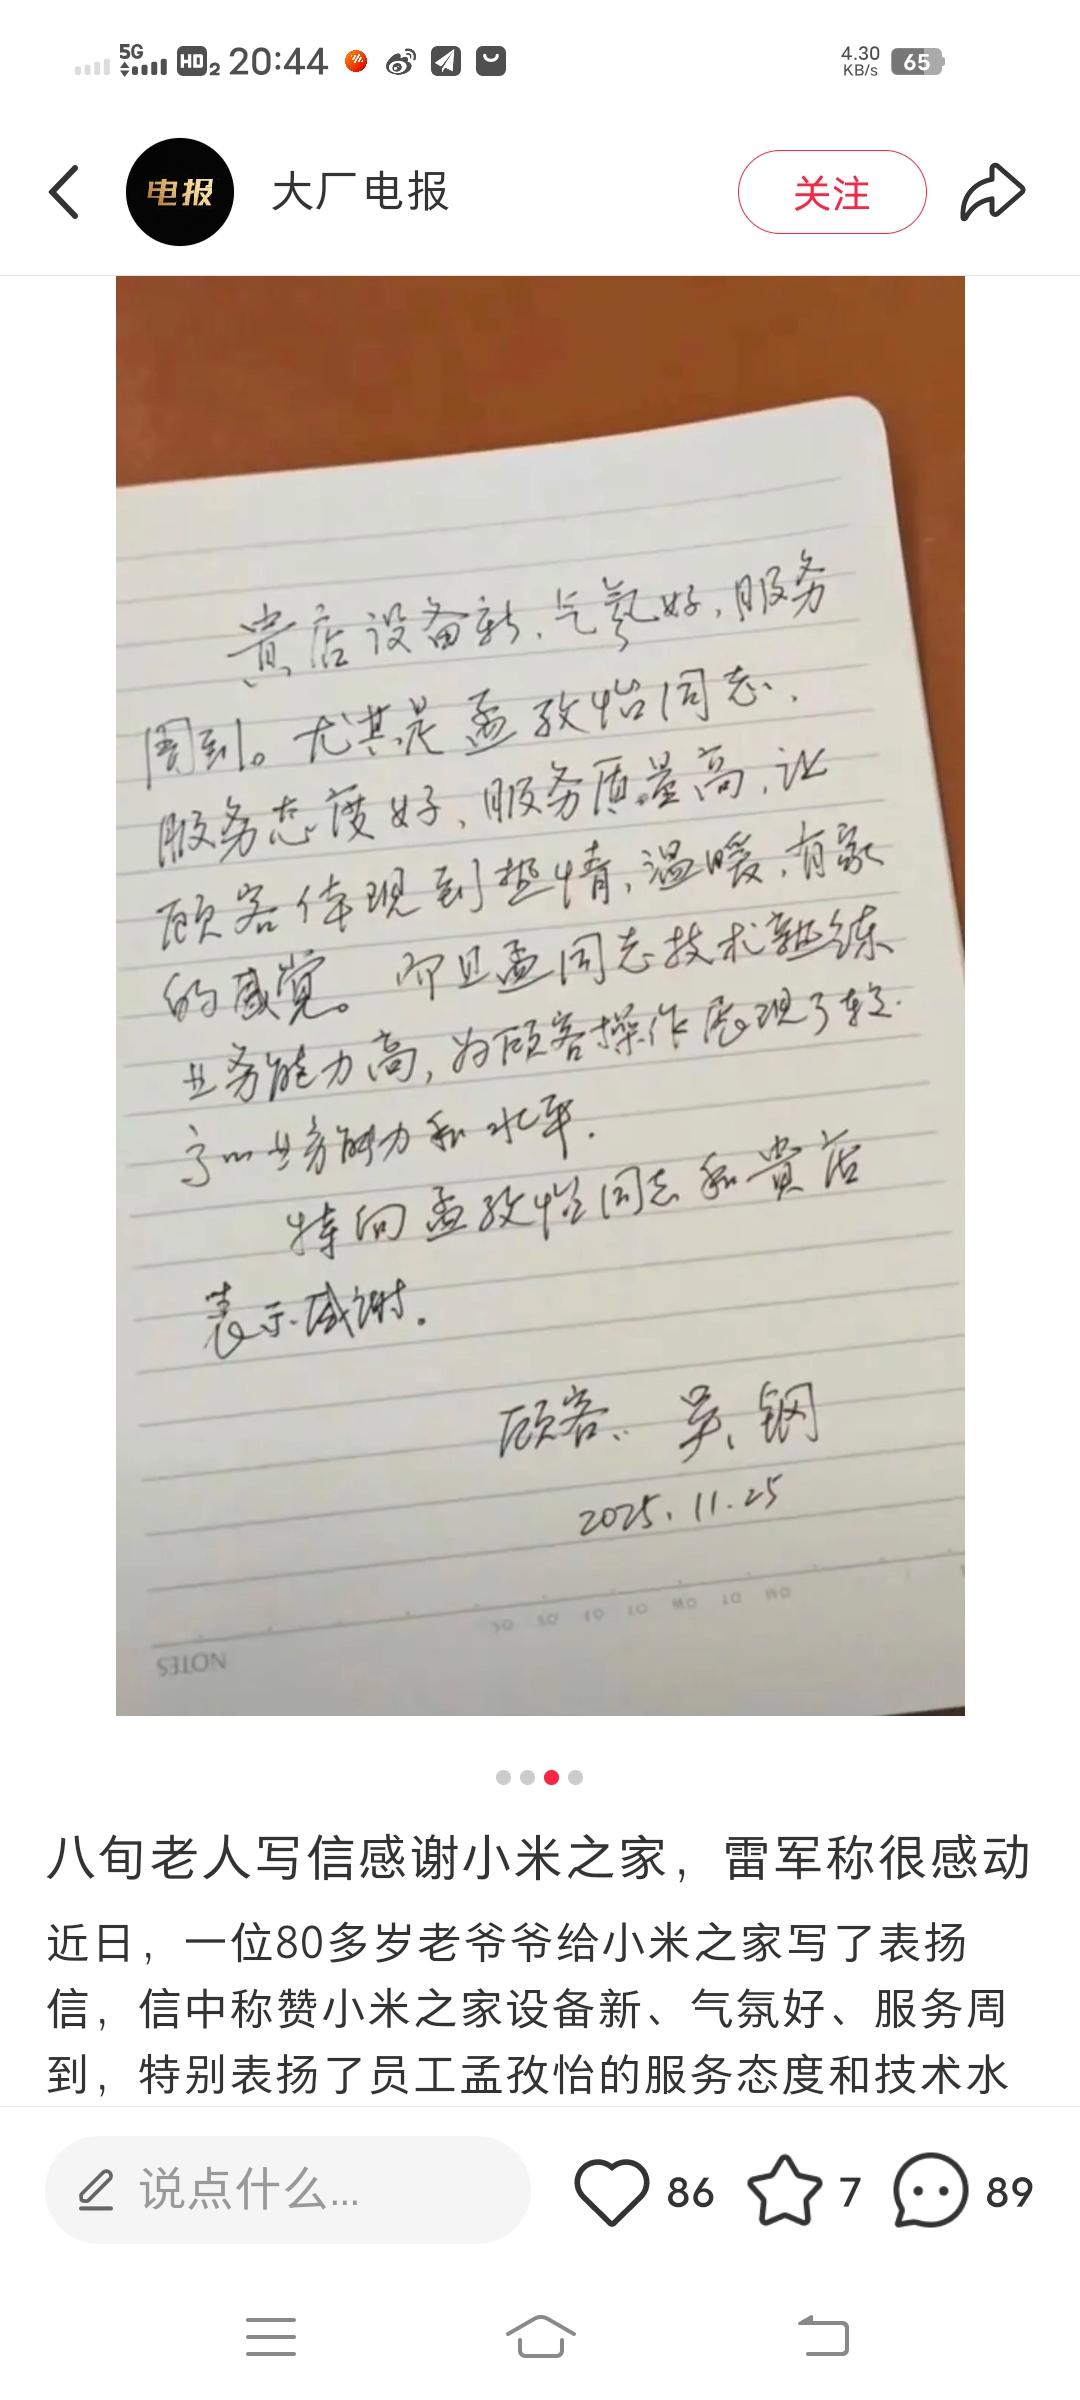 5G
HD 2 20:44
4.30 KB/s
65
电报
大厂电报
关注
贵店设备新、气氛好，服务
周到。尤其是孟孜怡同志、
服务态度好、服务质量高，让
顾客体现到热情，温暖，有家
的感觉。而且孟同志技术熟练
业务能力高，为顾客操作展现了较
高的业务能力和水平.
特向孟孜怡同志和贵店
表示感谢.
顾客：吴钢
2025.11.25
NOTES
八旬老人写信感谢小米之家，雷军称很感动
近日，一位80多岁老爷爷给小米之家写了表扬
信，信中称赞小米之家设备新、气氛好、服务周
到，特别表扬了员工孟孜怡的服务态度和技术水
说点什么...
86
7
89